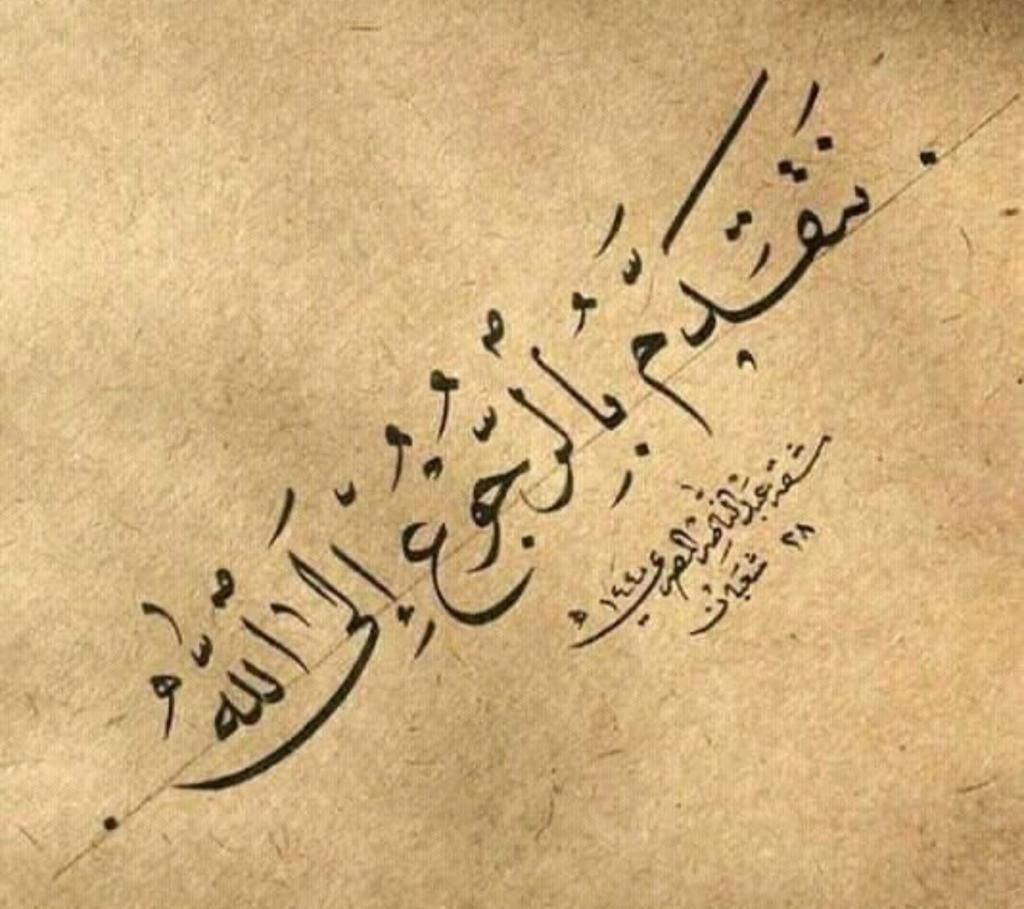 نَتَقَدَّم بِالرُّجُوعِ إِلَى اللَّه
مشقه عبد الناصر المصري ١٤٤٠ هـ
٢٨ شعبان